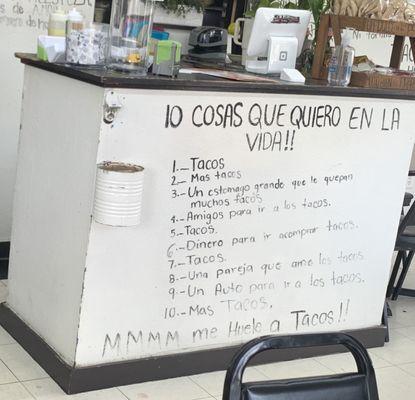 10 COSAS QUE QUIERO EN LA
VIDA!!
1.- Tacos
2.- Mas tacos
3.- Un estomago grande que le quepan
muchos tacos
4.- Amigos para ir a los tacos.
5.- Tacos.
6.- Dinero para ir acomprar tacos.
7.- Tacos.
8.- Una pareja que ame los tacos
9.- Un Auto para ir a los tacos.
10.- Mas Tacos.
MMMM me Huelo a Tacos!!